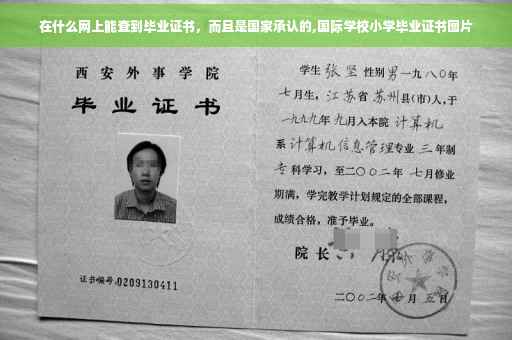 在什么网上能查到毕业证书，而且是国家承认的,国际学校小学毕业证书图片
西安外事学院
毕业证书
证书编号:0209130411
学生 张坚 性别男 一九八〇年
七月生，江苏省 苏州县(市)人,于
一九九九年 九月入本院 计算机
系 计算机信息管理专业 三 年制
专 科学习，至二〇〇二年 七月修业
期满，学完教学计划规定的全部课程，
成绩合格，准予毕业。
院长
二〇〇二年 七 月 五 日